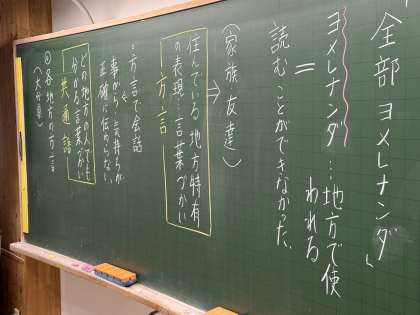 「全部 ヨメレナンダ」
ヨメレナンダ…地方で使
われる
＝
読むことができなかった。
(家族・友達)
⇒
住んでいる 地方特有
の表現…言葉づかい
方言
方言で会話
事がら、気持ちが
正確に伝わらない。
どの地方の人でも
分かる言葉づかい
共通語
各地方の方言